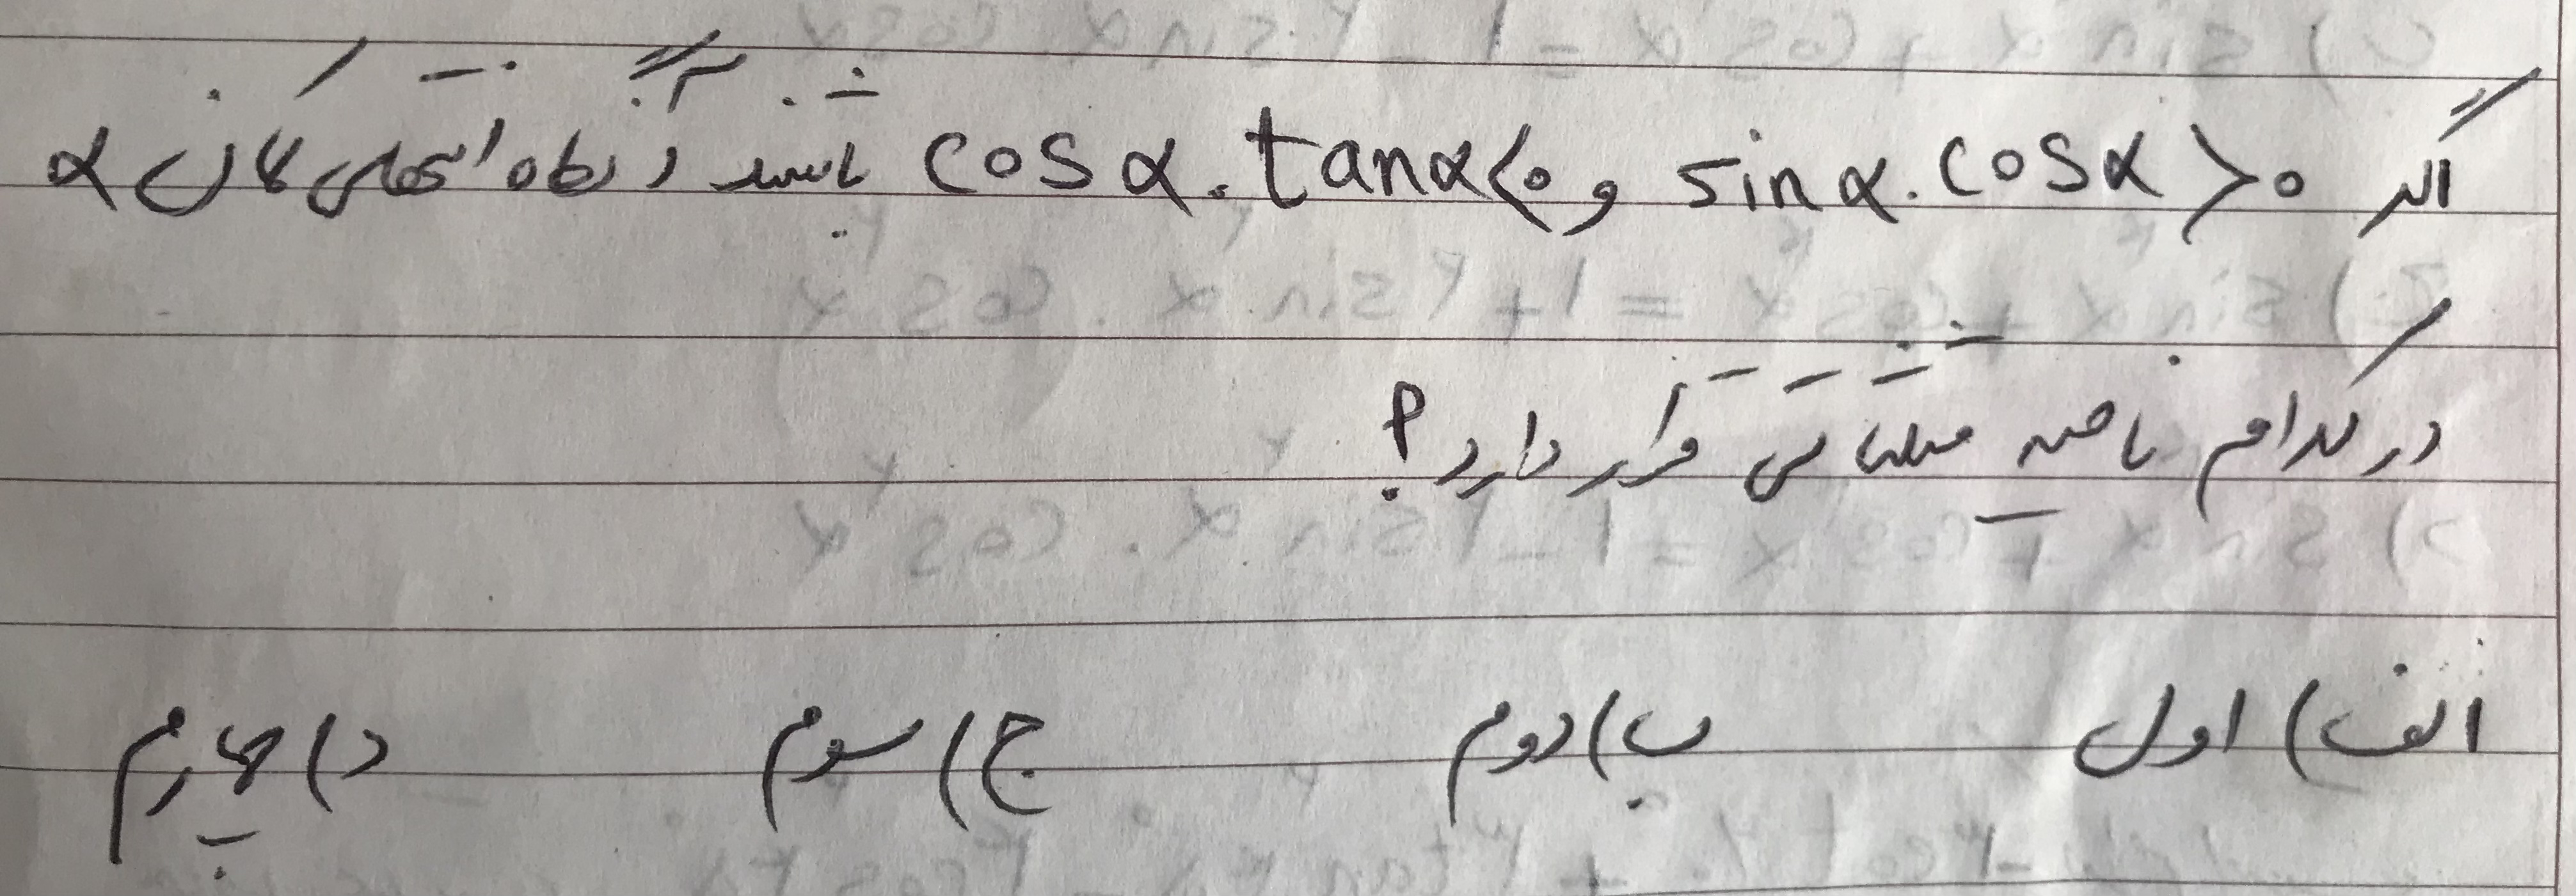 اگر sin α . cos α > 0 و cos α . tan α < 0 باشد آنگاه انتهای کمان α
در کدام ناحیه مثلثاتی قرار دارد؟
الف) اول ب) دوم ج) سوم د) چهارم